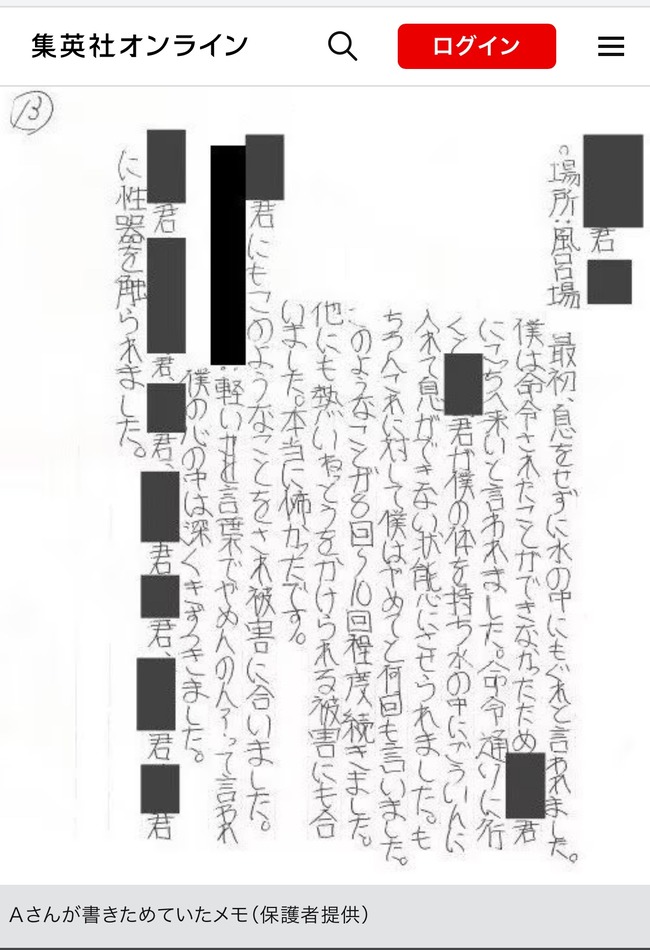 集英社オンライン
ログイン
B
君
。場所:風呂場
最初、息をせずに水の中にもぐれと言われました。
僕は命令されたことができなかったため 君
にこっちへ来いと言われました。命令通りに行
くと 君が僕の体を持ち水の中にごういんに
入れて息ができない状態にさせられました。も
ちろんそれに対して僕はやめてと何回も言いました。
このようなことが8回〜10回程度続きました。
他にも熱いねっとうをかけられる被害にも合
いました。本当に怖かったです。
君にもこのようなことをされ被害に合いました。
:軽い 言葉でやめんの人?って言われ
僕の心の中は深くきずつきました。
君 君、 君、 君 君、 君 君
に性器を触られました。
Aさんが書きためていたメモ(保護者提供)